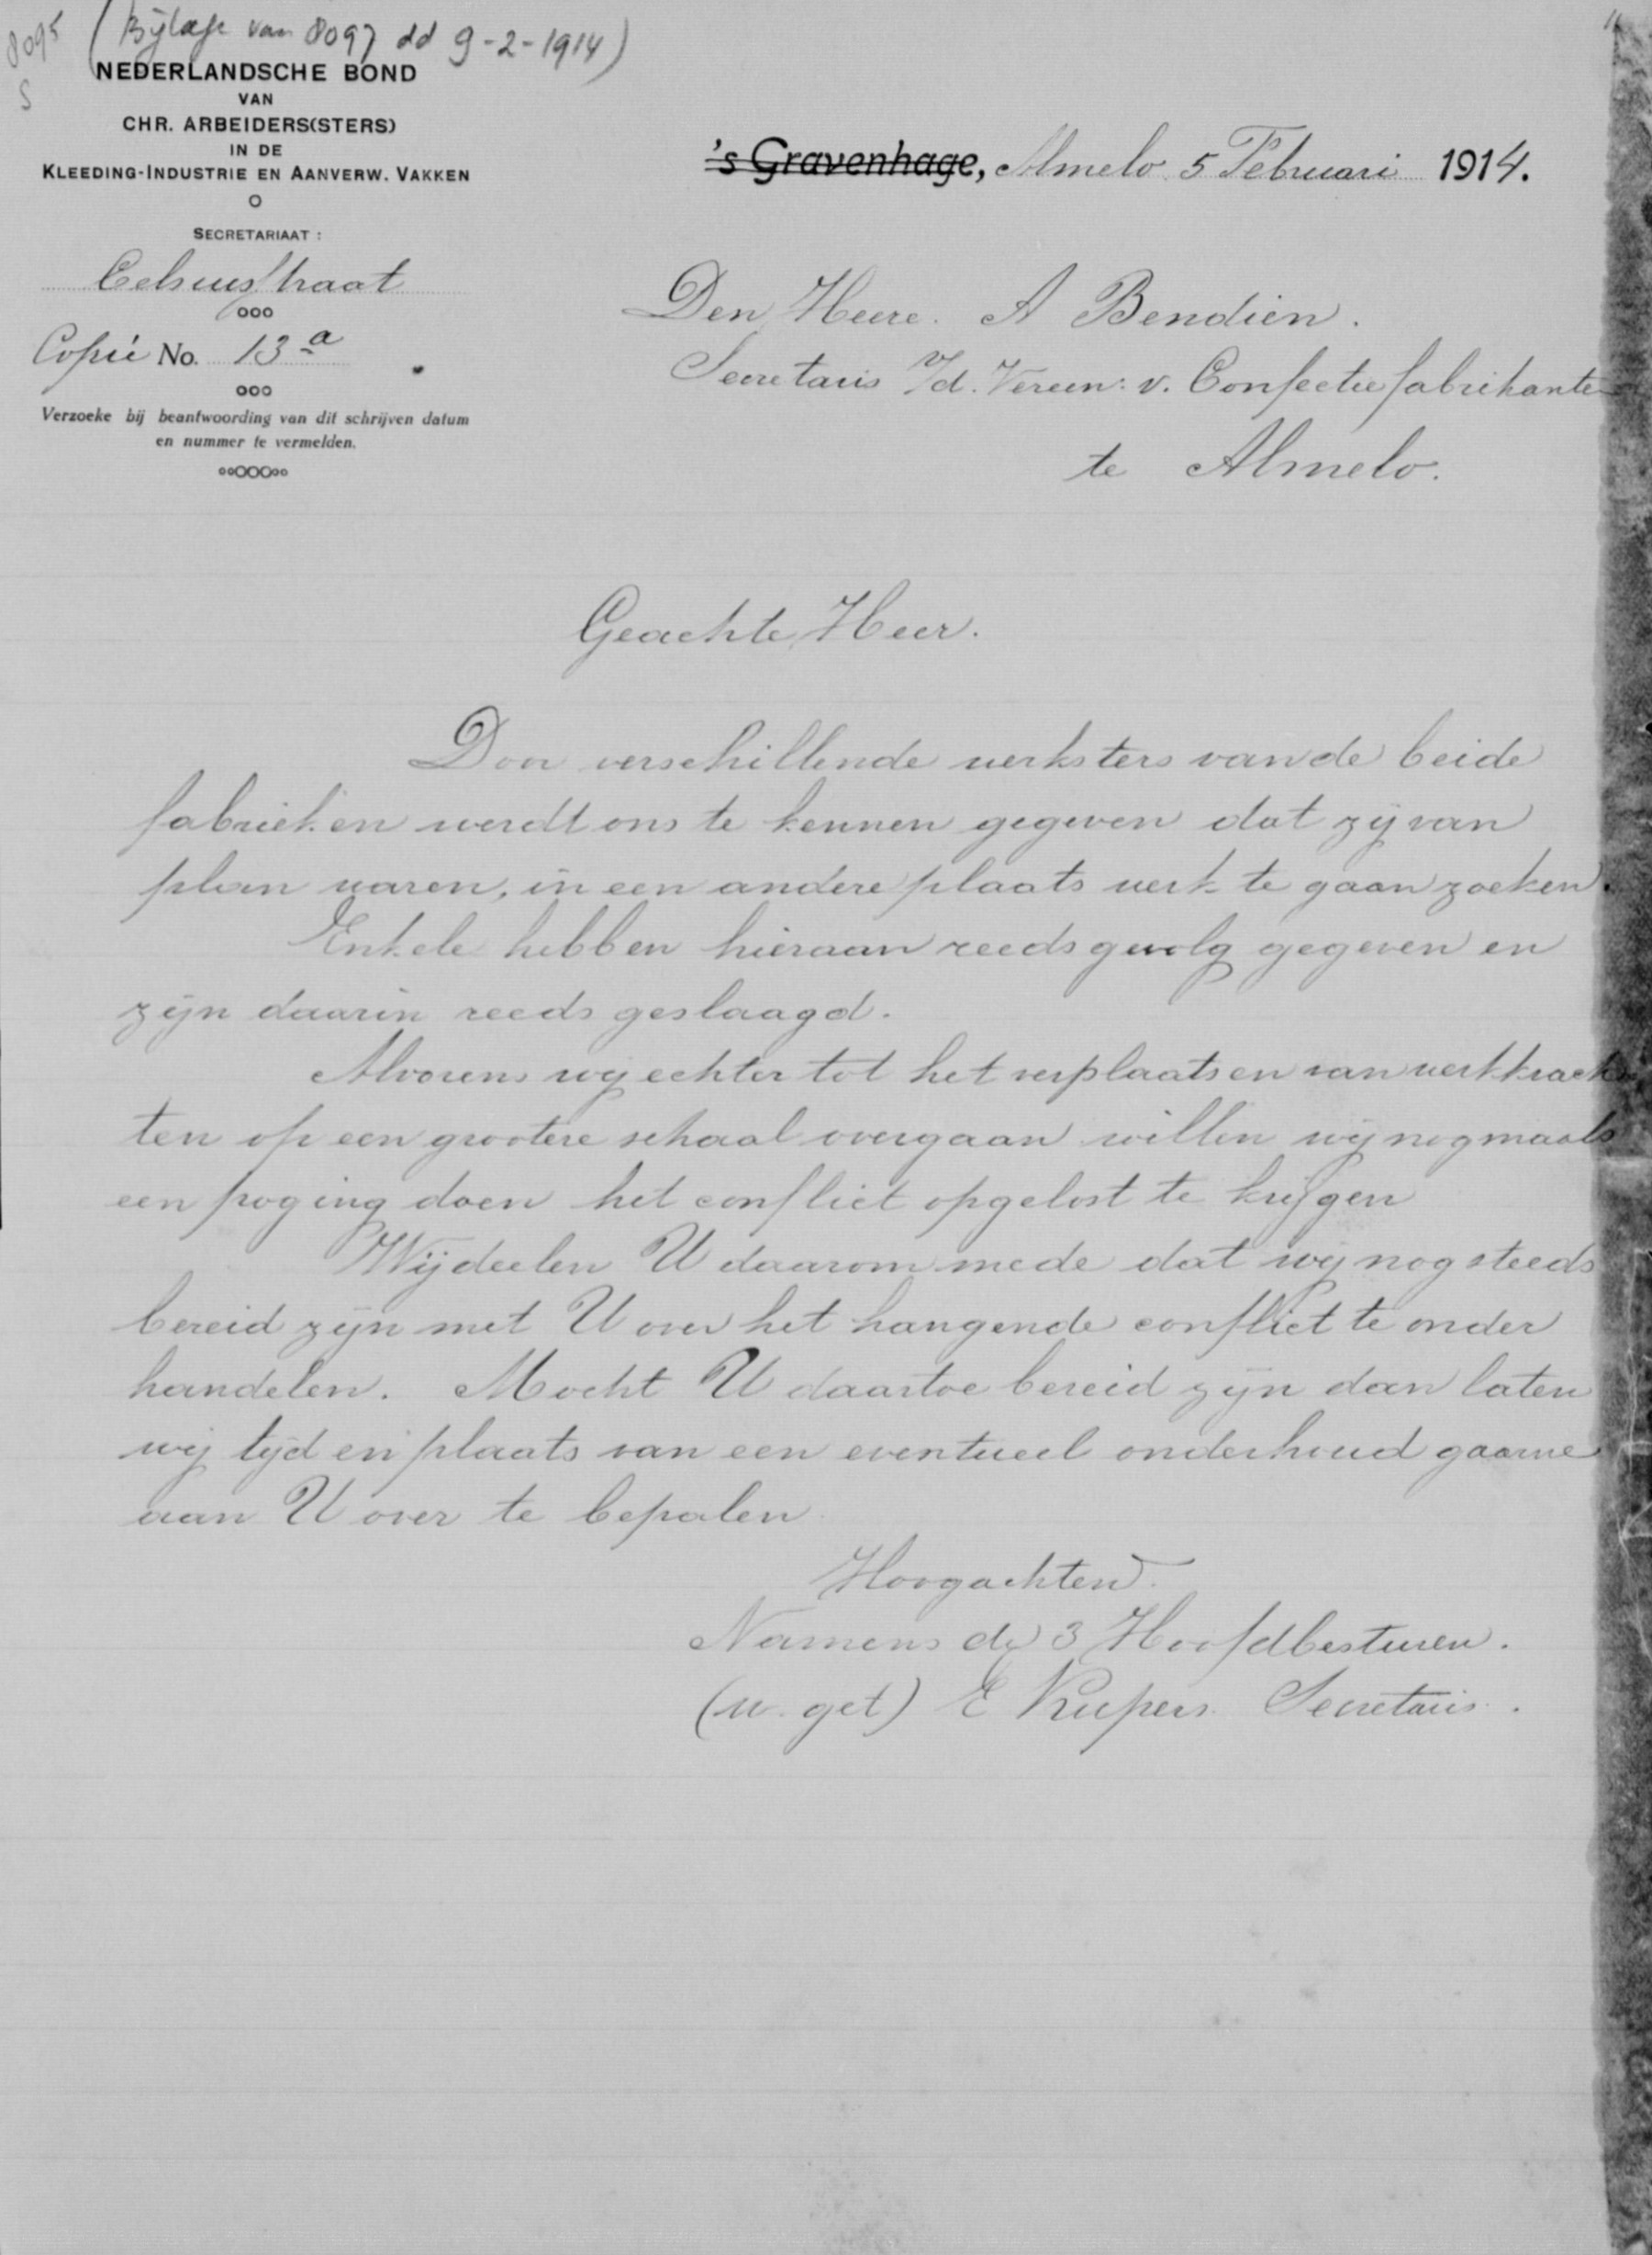 8095
S
(Bijlage van 8097 dd 9-2-1914)
NEDERLANDSCHE BOND
VAN
CHR. ARBEIDERS(STERS)
IN DE
KLEEDING-INDUSTRIE EN AANVERW. VAKKEN
SECRETARIAAT:
Celsiusstraat
Copie No. 13a
Verzoeke bij beantwoording van dit schrijven datum
en nummer te vermelden.
's Gravenhage, Almelo 5 Februari 1914.
Den Heere. A Bendien.
Secretaris v/d. Vereen: v. Confectiefabrikanten
te Almelo.
Geachte Heer.
Door verschillende werksters van de beide
fabrieken werdt ons te kennen gegeven dat zij van
plan waren, in een andere plaats werk te gaan zoeken.
Enkele hebben hieraan reeds gevolg gegeven en
zijn daarin reeds geslaagd.
Alvorens wij echter tot het verplaatsen van werkkrach
ten op een grootere schaal overgaan willen wij nogmaals
een poging doen het conflict opgelost te krijgen
Wij deelen U daarom mede dat wij nog steeds
bereid zijn met U over het hangende conflict te onder
handelen. Mocht U daartoe bereid zijn dan laten
wij tijd en plaats van een eventueel onderhoud gaarne
aan U over te bepalen
Hoogachtend.
Namens de 3 Hoofdbesturen.
(w. get) E Kupers Secretaris.